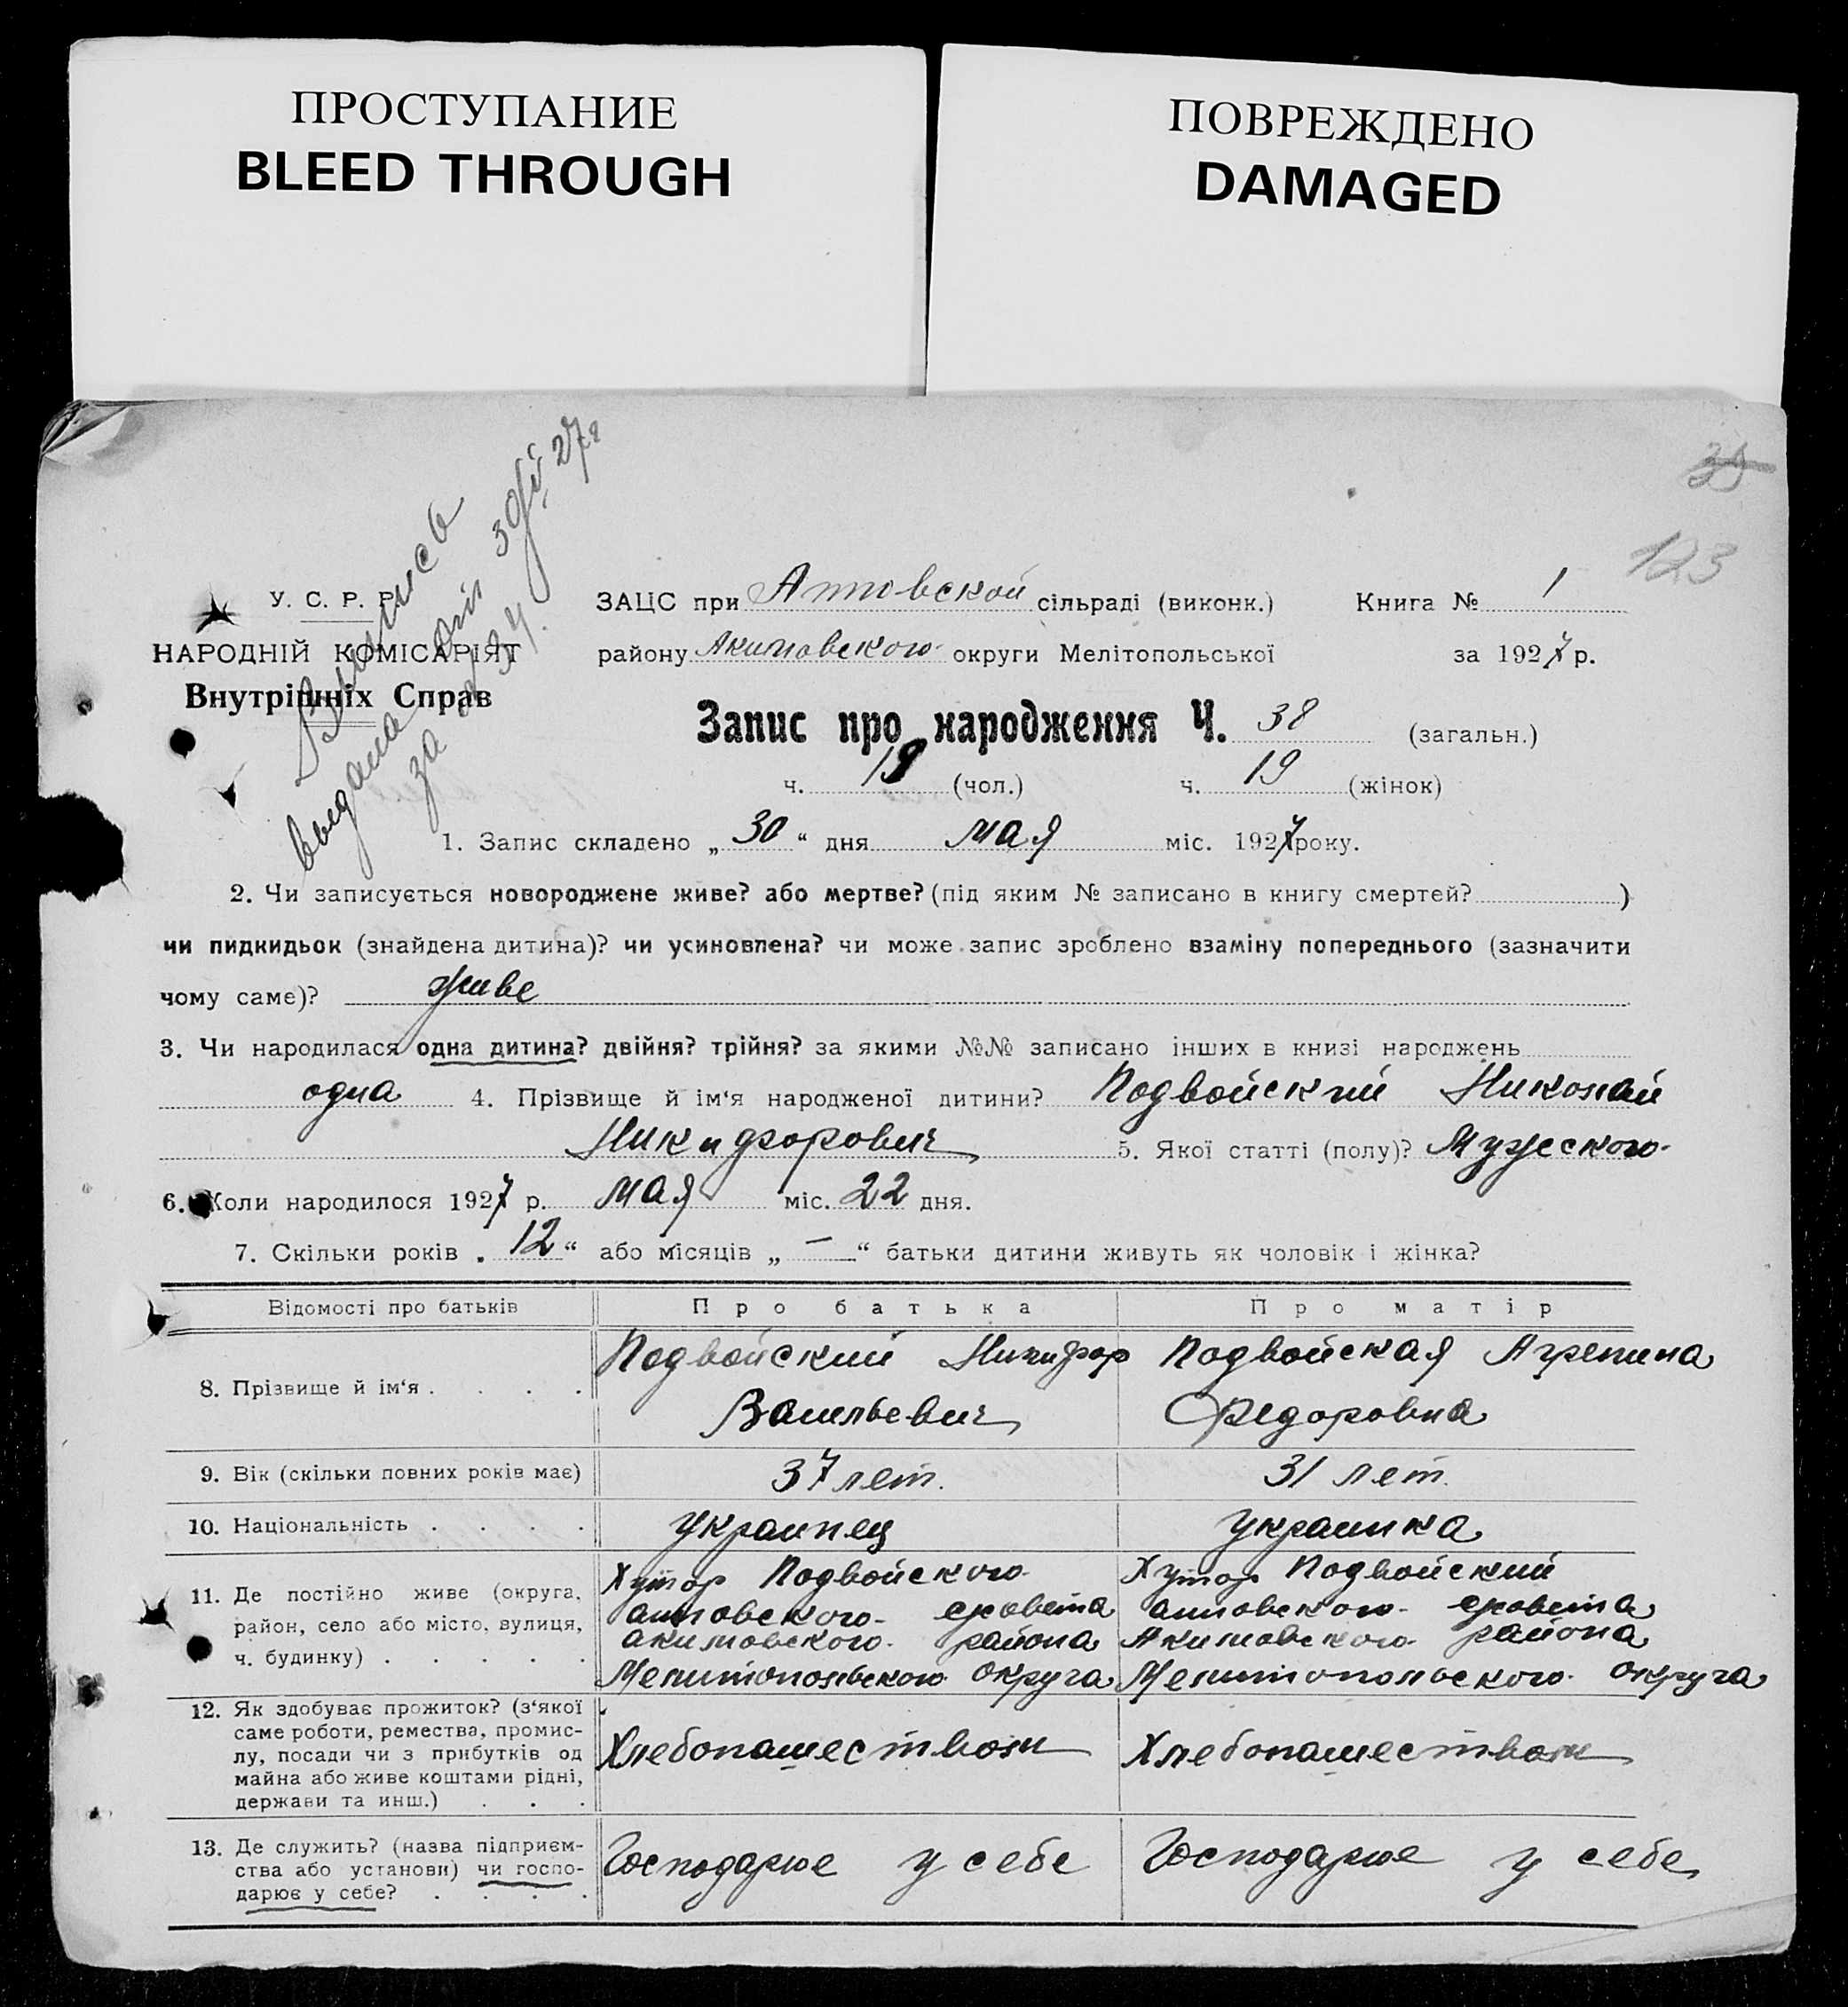 ПРОСТУПАНИЕ
BLEED THROUGH
ПОВРЕЖДЕНО
DAMAGED
123
Выпись
выдана
за № 34.
27г
У. С. Р. Р.
НАРОДНІЙ КОМІСАРІЯТ
Внутрішніх Справ
ЗАЦС при Аттовской сільраді (виконк.) Книга № 1
району Акимовского округи Мелітопольської за 1927 р.
Запис про народження Ч. 38 (загальн.)
ч. 19 (чол.) ч. 19 (жінок)
1. Запис складено „ 30 “ дня мая міс. 1927 року.
2. Чи записується новороджене живе? або мертве? (під яким № записано в книгу смертей? )
чи пидкидьок (знайдена дитина)? чи усиновлена? чи може запис зроблено взаміну попереднього (зазначити
чому саме)? живе
3. Чи народилася одна дитина? двійня? трійня? за якими №№ записано інших в книзі народжень
одна 4. Прізвище й ім‘я народженої дитини? Подвойский Николай
Никифорович 5. Якої статті (полу)? Мужеского
6. Коли народилося 1927 р. мая міс. 22 дня.
7. Скільки років „ 12 “ або місяців „ — “ батьки дитини живуть як чоловік і жінка?
Відомості про батьків Про батька Про матір
8. Прізвище й ім‘я . . . . Подвойский Никифор Подвойская Агрепина
Васильевич Федоровна
9. Вік (скільки повних років має) 37 лет. 31 лет.
10. Національність . . . . украинец украинка
11. Де постійно живе (округа, Хутор Подвойского Хутор Подвойский
район, село або місто, вулиця, аттовского с/совета аттовского с/совета
ч. будинку) . . . . . акимовского района Акимовского района
Мелитопольского округа Мелитопольского округа
12. Як здобуває прожиток? (з‘якої
саме роботи, ремества, промис-
лу, посади чи з прибутків од Хлебопашеством Хлебопашеством
майна або живе коштами рідні,
держави та инш.) . . .
13. Де служить? (назва підприєм-
ства або установи) чи госпо- Господарює у себе Господарює у себе
дарює у себе? . . . .